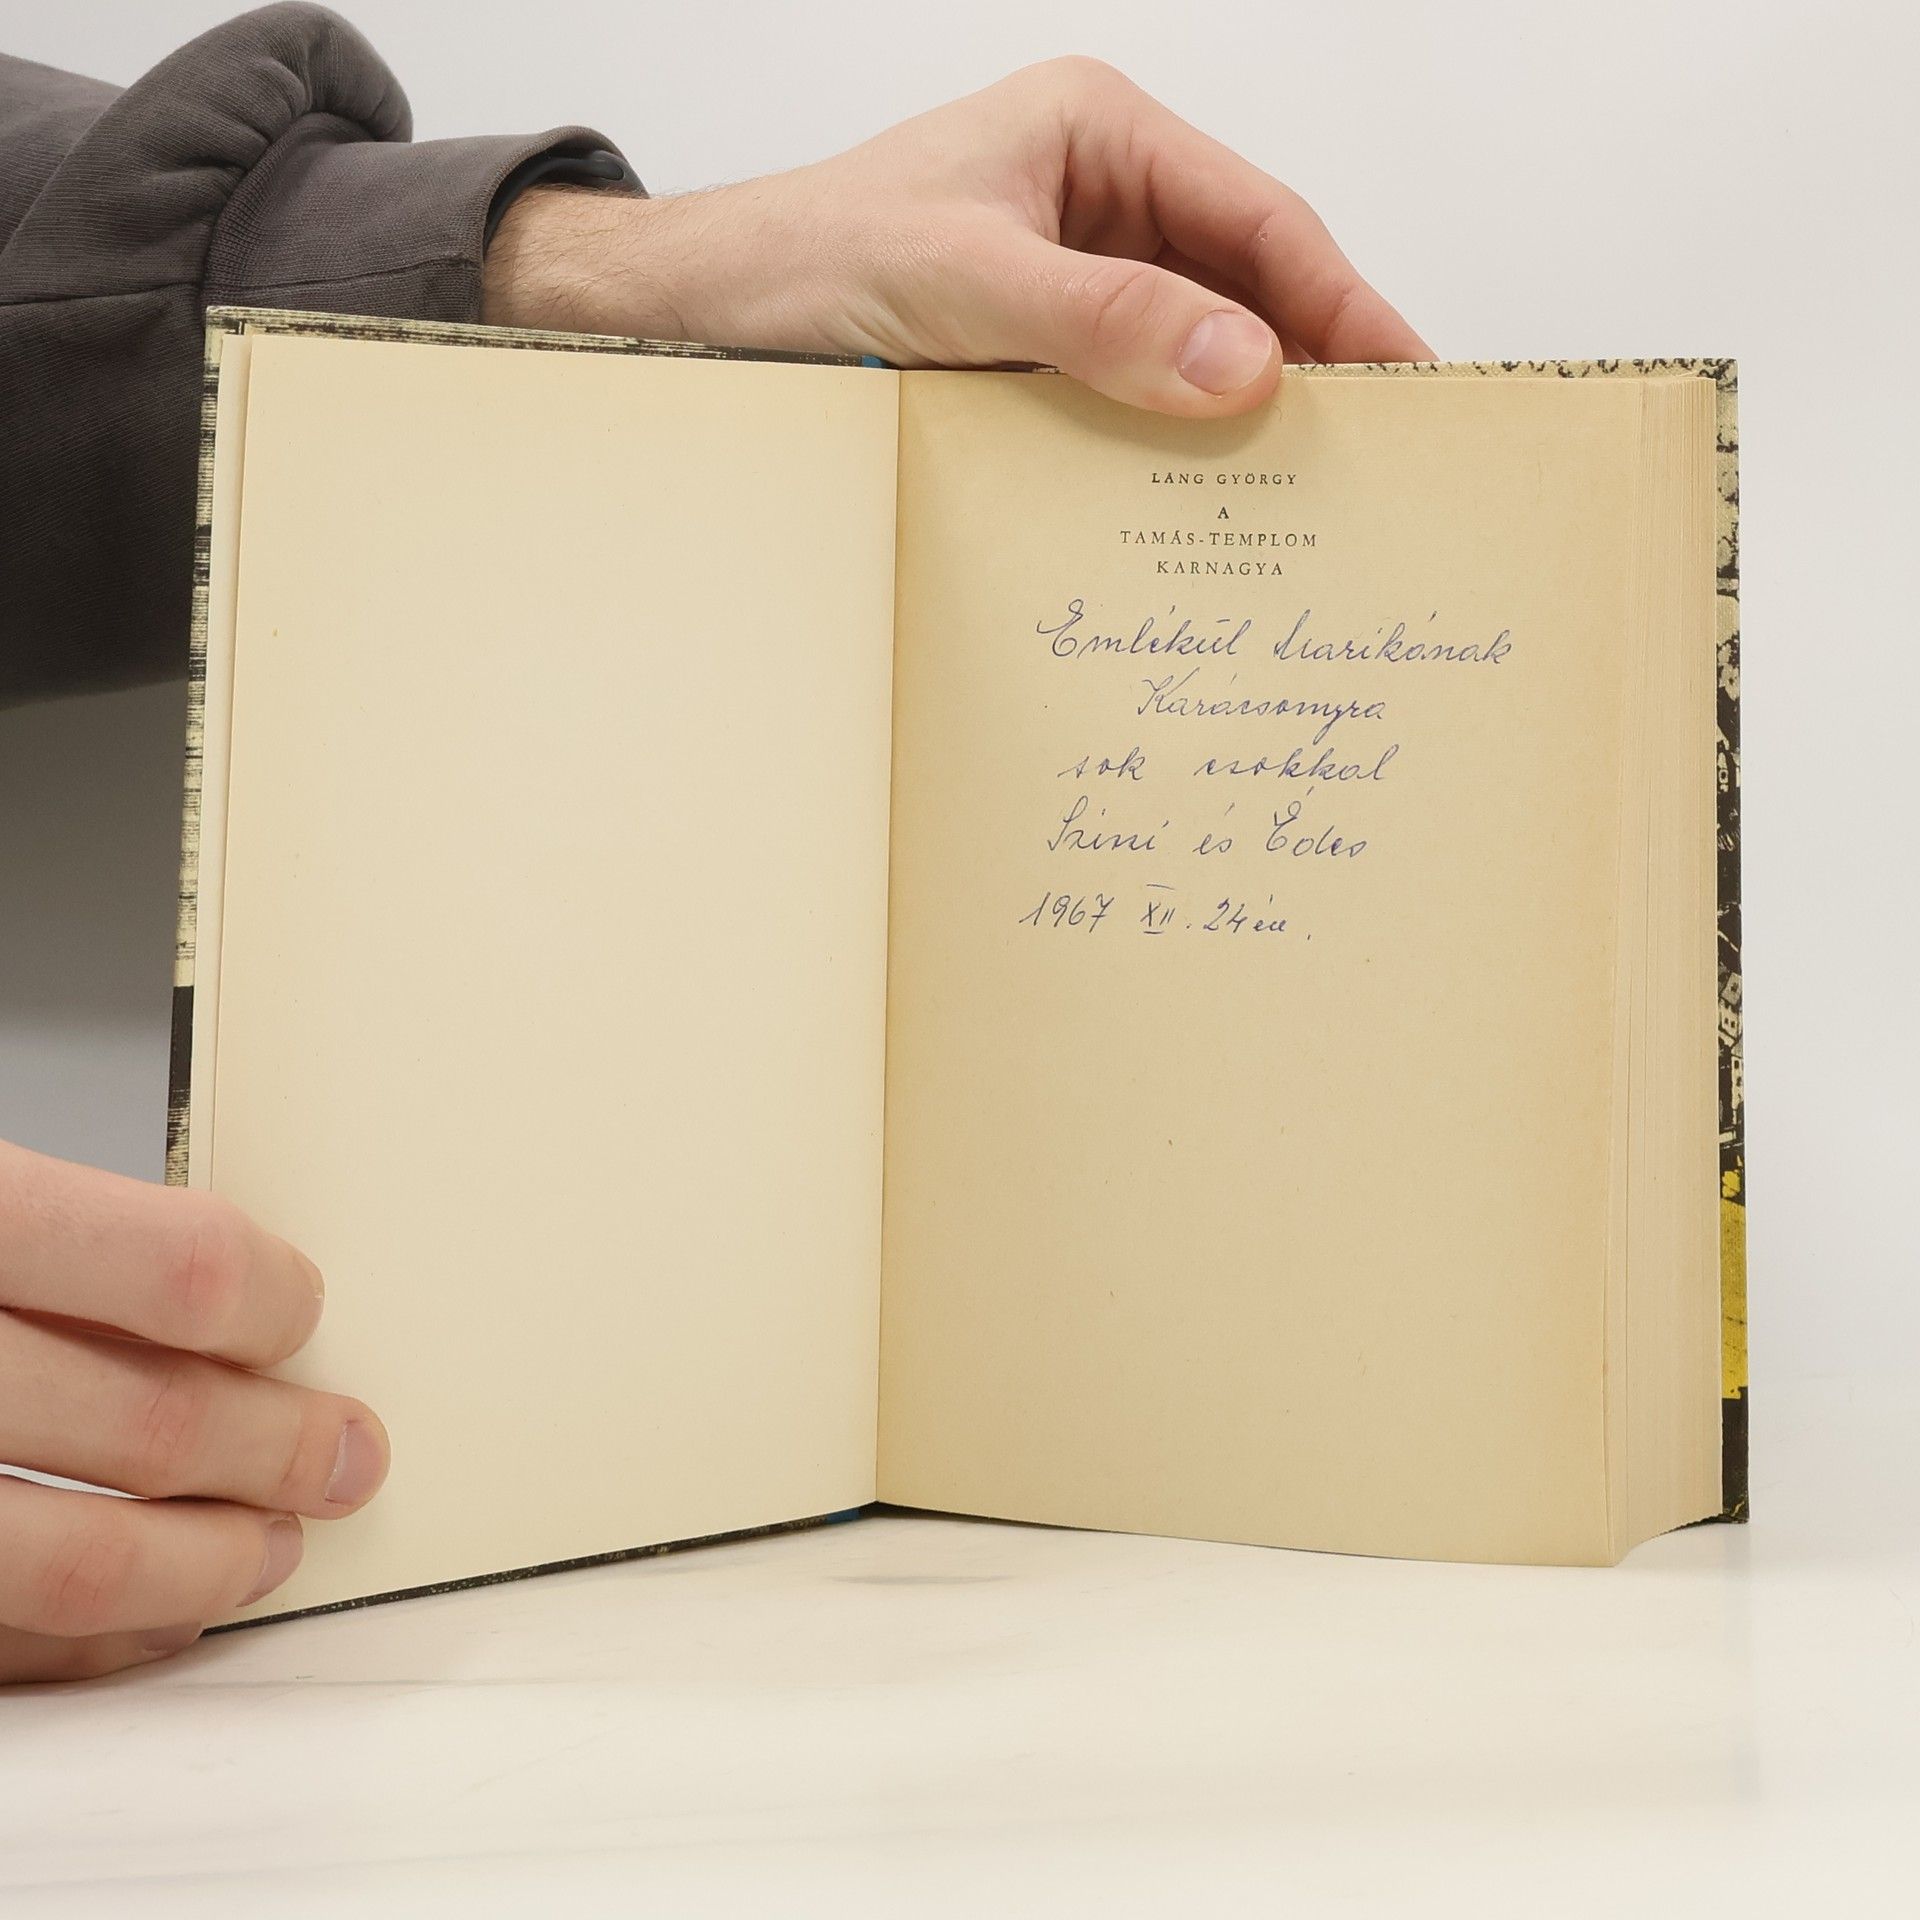 LÁNG GYÖRGY
A
TAMÁS-TEMPLOM
KARNAGYA
Emlékül Marikának
Karácsonyra
sok csokkal
és Édes
1967 XII. 24 én.